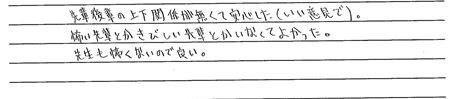 先輩後輩の上下関係が無くて安心した(いい意見で)。
怖い先輩とかきびしい先輩とかいなくてよかった。
先生も怖くないので良い。